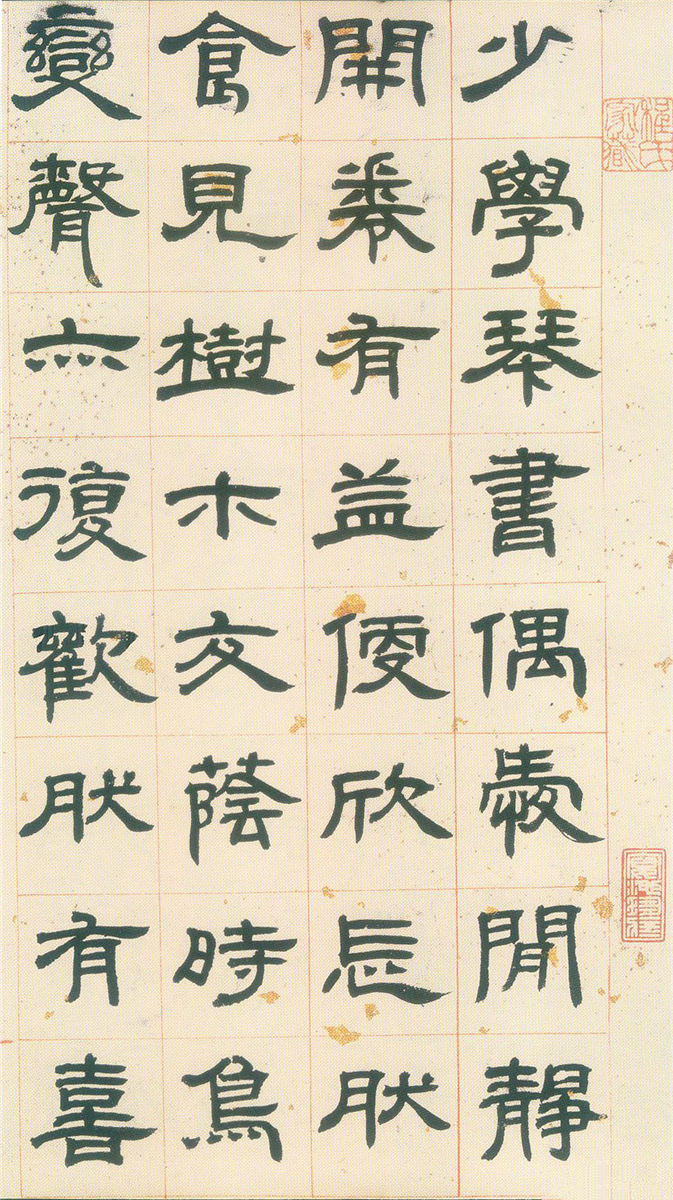 程氏家藏
少學琴書偶愛閒靜
開卷有益便欣忘肰
食見樹木交蔭時鳥
變聲亦復歡肰有喜